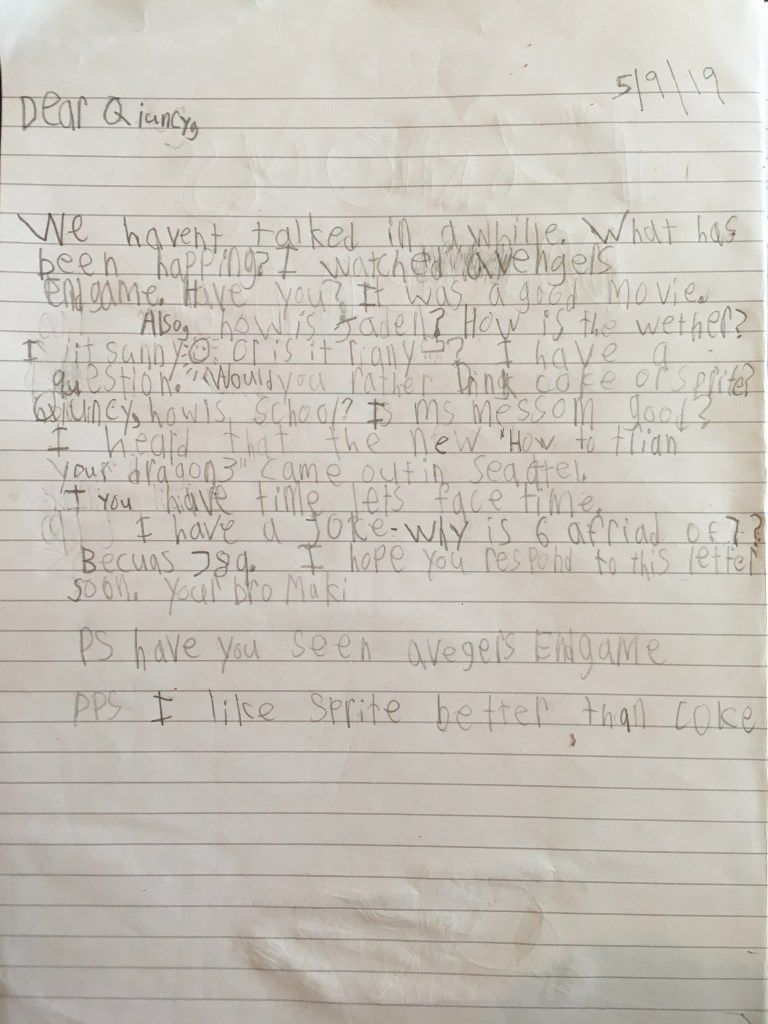 5/9/19
Dear Qiuncy,
We havent talked in awhille. What has
been happing? I watched avengers
Endgame. Have you? It was a good movie.
Also, how is Jaden? How is the wether?
I it sunny or is it riany? I have a
question. "Would you rather Dink coke or sprite?
Qiuncy, how is school? Is ms messom good?
I heard that the new "How to trian
your dragon3" came out in Seattel.
I you have time lets face time.
I have a JOKE-Why is 6 afriad of 7?
Becuas 789. I hope you respond to this letter
soon. Your bro Maki
PS have you seen avegers Endgame
PPS I like Sprite better than coke